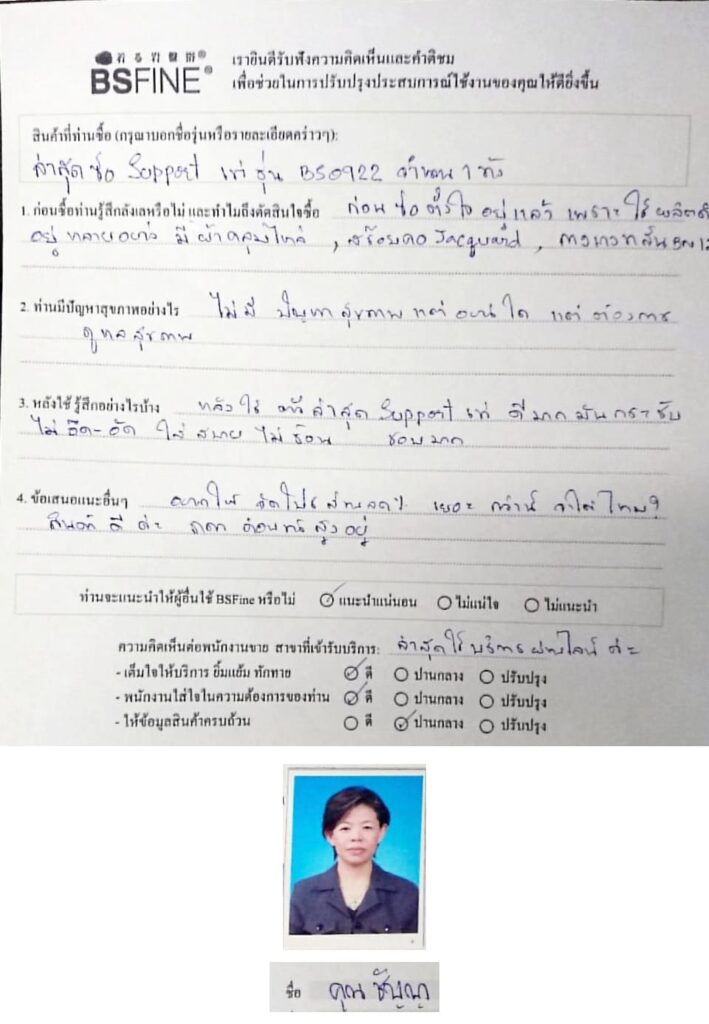 BSFINE®
เรายินดีรับฟังความคิดเห็นและคำติชม
เพื่อช่วยในการปรับปรุงประสบการณ์ใช้งานของคุณให้ดียิ่งขึ้น
สินค้าที่ท่านซื้อ (กรุณาบอกชื่อรุ่นหรือรายละเอียดคร่าวๆ):
ล่าสุด ซื้อ Support เข่า รุ่น BS0922 จำนวน 1 ตัว
1. ก่อนซื้อท่านรู้สึกลังเลหรือไม่ และทำไมถึงตัดสินใจซื้อ ก่อน ซื้อ ตั้งใจ อยู่ แล้ว เพราะ ใช้
อยู่ หลายอย่าง มี ผ้าคลุมไหล่ , สร้อยคอ Jacquard , กางเกงขาสั้น
2. ท่านมีปัญหาสุขภาพอย่างไร ไม่มี ปัญหา สุขภาพ แต่ อย่างใด แต่ ต้องการ
ดูแลสุขภาพ
3. หลังใช้ รู้สึกอย่างไรบ้าง หลังใช้ ตัว ล่าสุด Support เข่า ดีมาก มันกระชับ
ไม่อึดอัด ใส่ สบาย ไม่ร้อน ชอบมาก
4. ข้อเสนอแนะอื่นๆ อยากให้ จัดโปร ส่วนลด % เยอะ กว่านี้ จะได้ ไหม?
สินค้า ดี ค่ะ ราคา ค่อนข้าง สูง อยู่
ท่านจะแนะนำให้ผู้อื่นใช้ BSFine หรือไม่ แนะนำแน่นอน ไม่แน่ใจ ไม่แนะนำ
ความคิดเห็นต่อพนักงานขาย สาขาที่เข้ารับบริการ: ล่าสุดใช้บริการผ่านไลน์ ค่ะ
- เต็มใจให้บริการ ยิ้มแย้ม ทักทาย ดี ปานกลาง ปรับปรุง
- พนักงานใส่ใจในความต้องการของท่าน ดี ปานกลาง ปรับปรุง
- ให้ข้อมูลสินค้าครบถ้วน ดี ปานกลาง ปรับปรุง
ชื่อ คุณ